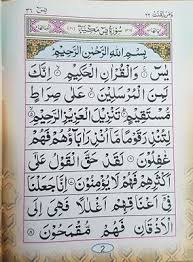 سُوْرَةُ يٰسٓ مَكِّيَّةٌ
بِسْمِ اللهِ الرَّحْمٰنِ الرَّحِيْمِ
يٰسٓ ۚ وَالْقُرْاٰنِ الْحَكِيْمِ ۙ اِنَّكَ
لَمِنَ الْمُرْسَلِيْنَ ۙ عَلٰى صِرَاطٍ
مُّسْتَقِيْمٍ ؕ تَنْزِيْلَ الْعَزِيْزِ الرَّحِيْمِ ۙ
لِتُنْذِرَ قَوْمًا مَّاۤ اُنْذِرَ اٰبَآؤُهُمْ فَهُمْ
غٰفِلُوْنَ لَقَدْ حَقَّ الْقَوْلُ عَلٰۤى
اَكْثَرِهِمْ فَهُمْ لَا يُؤْمِنُوْنَ اِنَّا جَعَلْنَا
فِيْۤ اَعْنَاقِهِمْ اَغْلٰلًا فَهِىَ اِلَى
الْاَذْقَانِ فَهُمْ مُّقْمَحُوْنَ
2